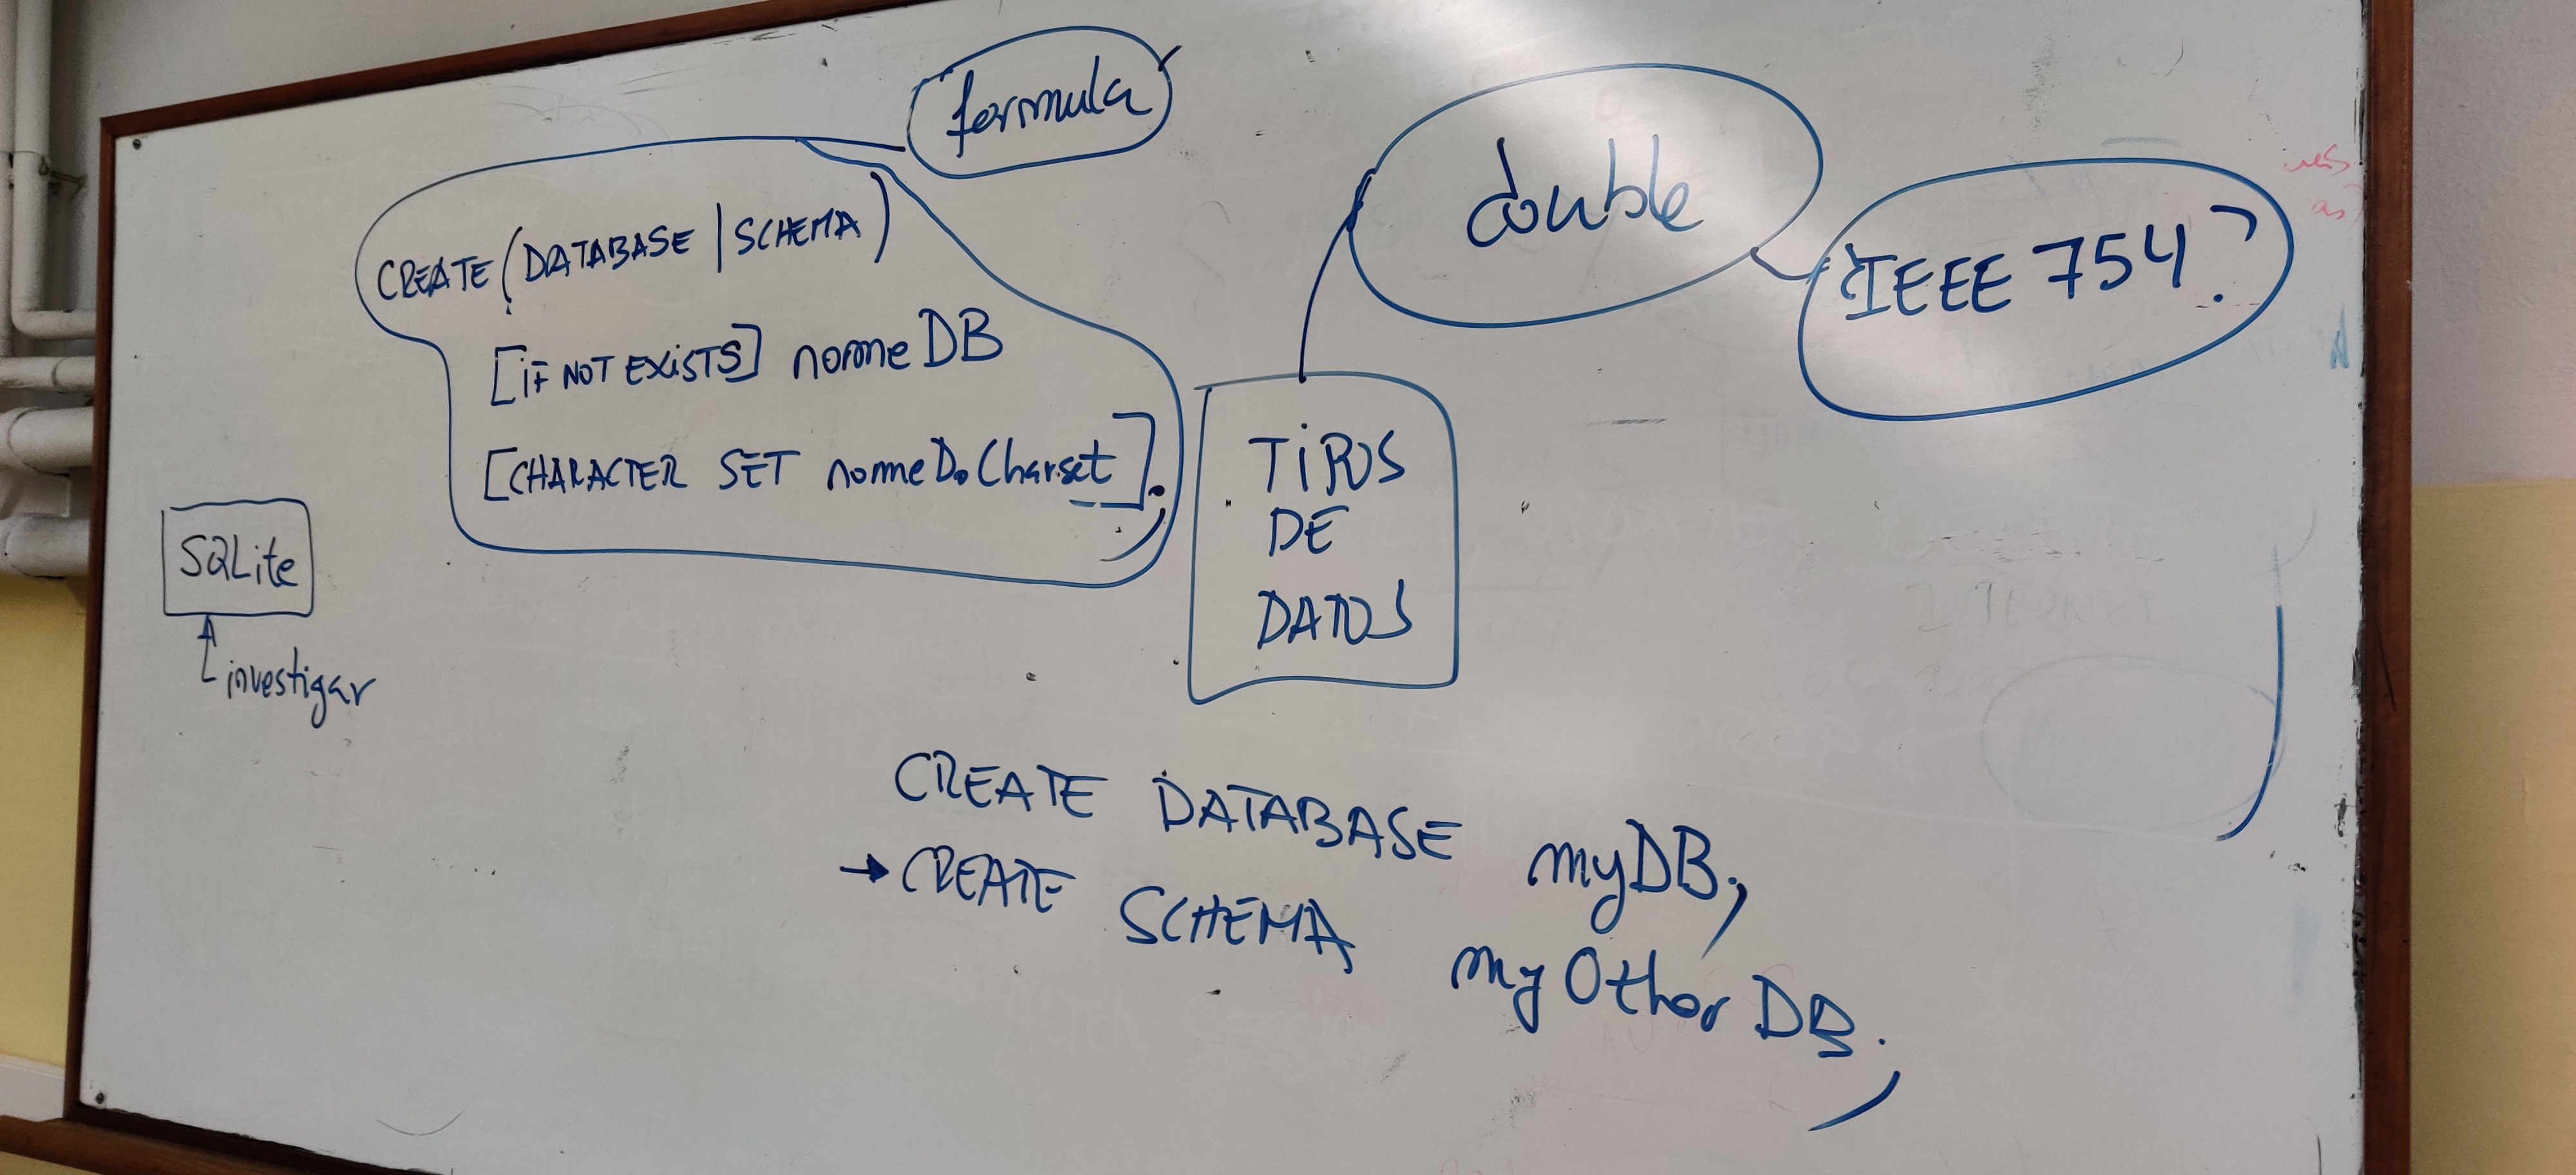 formula
CREATE (DATABASE | SCHEMA)
[iF NOT EXiSTS] nomeDB
[CHARACTER SET nomeDoCharset];
double
IEEE 754?
TiPOS
DE
DATOS
SQLite
investigar
CREATE DATABASE myDB;
→ CREATE SCHEMA myOtherDB;